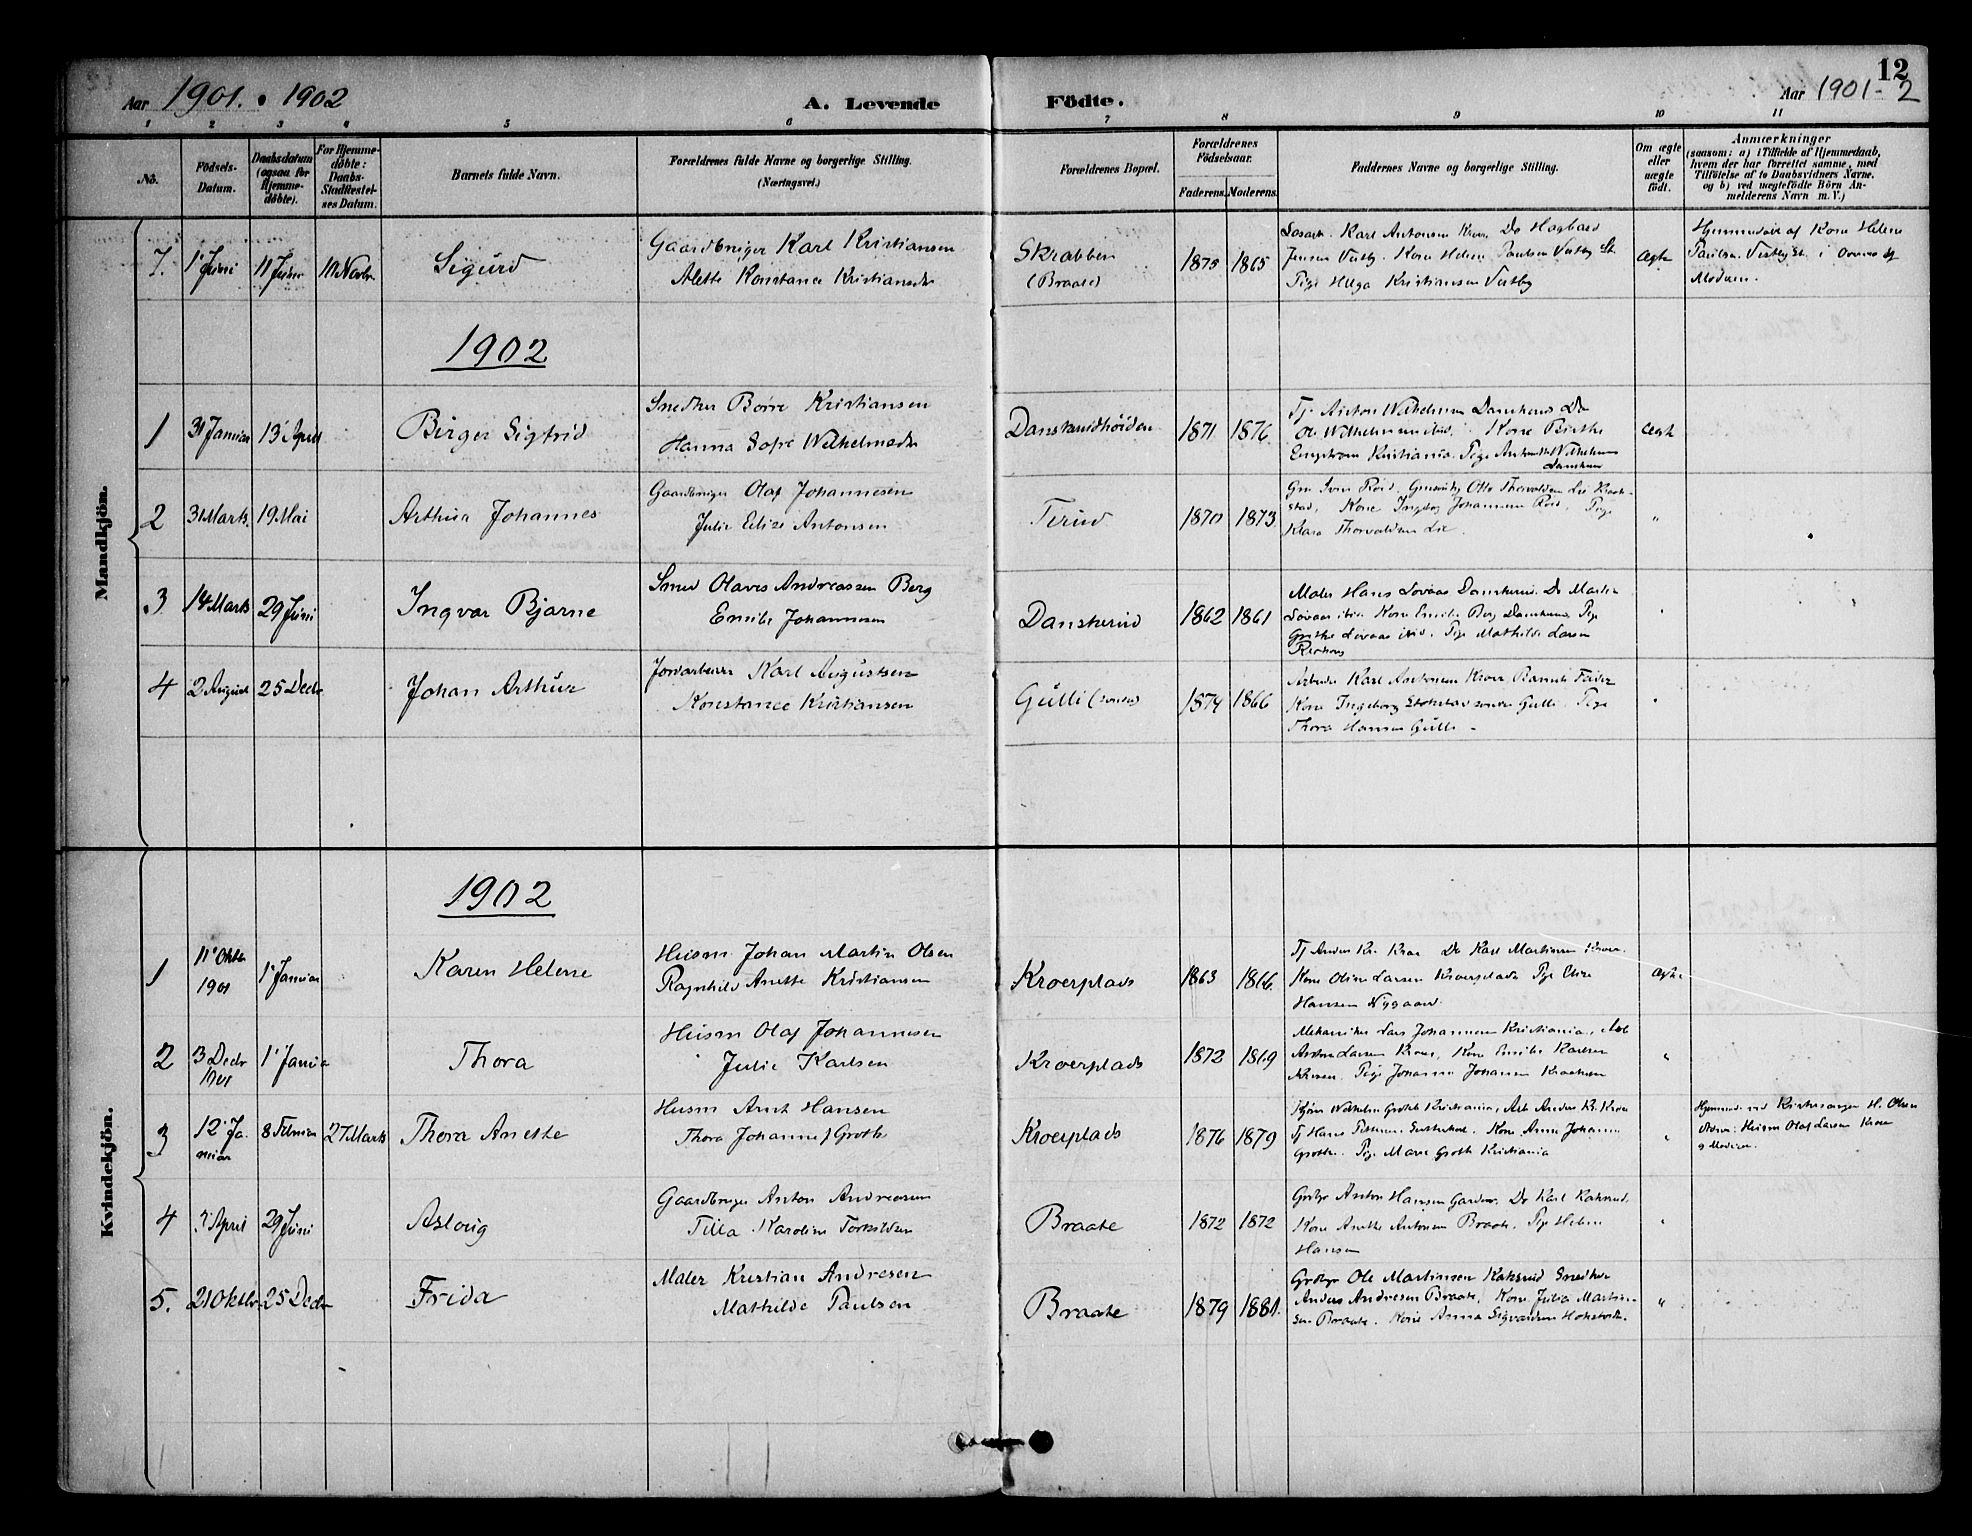 12
Aar 1901. 1902 A. Levende Födte. Aar 1901-2
1 2 3 4 5 6 7 8 9 10 11
No. Födsels-Datum. Daabsdatum (ogsaa for Hjemmedöbte). For Hjemmedöbte: Daabs-Stadfæstelses Datum. Barnets fulde Navn. Forældrenes fulde Navne og borgerlige Stilling. (Næringsvei.) Forældrenes Bopæl. Forældrenes Födselsaar. Faderens. Moderens. Faddernes Navne og borgerlige Stilling. Om ægte eller uægte født. Anmærkninger (saasom: a) i Tilfælde af Hjemmedaab, hvem der har forrettet samme, med Tilföielse af to Daabsvidners Navne, og b) ved uægtefödte Börn Anmelderens Navn m. V.)
Mandkjön.
7. 1' Juni 11 Juni 1ste Novbr Sigurd
Gaardbruger Karl Kristiansen
Alette Konstance Kristiansdtr
Skrabben (Braate) 1875 1865
Karl Antonsen Kroer. Do Hagbard
Jensen Vestby. Kone Helene Paulsen Vestby
Pige Helga Kristiansen Vestby
Ægte
Hjemmedøbt af Kone Helene
Paulsen Vestby i Overvær af
Moderen.
1902
1 31 Januar 13 April Birger Sigfrid
Snedker Børre Kristiansen
Hanna Sofie Wilhelmsdtr
Danskerudhöiden 1871 1876
Tj. Anton Wilhelmsen Danskerud Do
Ole Wilhelmsen ibid. Kone Birthe
Engstrøm Kristiania. Pige Wilhelmsen
Danskerud
Ægte
2 31 Marts 19 Mai Arthur Johannes
Gaardbruger Olaf Johannesen
Julie Elise Antonsen
Tirud 1870 1873
Iver Röid. Otto Thorvaldsen Lie
Kone Ingeborg Johannesen Röid. Pige
Klara Thorvaldsen Lie.
"
3 14 Marts 29 Juni Ingvar Bjarne
Smed Olaves Andreassen Berg
Emilie Johannesen
Danskerud 1862 1861
Maler Hans Lovaas Danskerud. Do Martin
Lovaas ibid. Kone Emilie Berg Danskerud Pige
Grethe Lovaas ibid. Pige Mathilde Larsen
"
4 2 August 25 Decbr Johan Arthur
Jordarbeider Karl Augustsen
Konstance Kristiansen
Gulli (søndre) 1874 1866
Arbeider Karl Antonsen Kroer
Kone Ingeborg søndre Gulli. Pige
Thora Hansen Gulli -
"
Kvindekjön.
1902
1 11' Oktbr 1901 1' Januar Karen Helene
Husm. Johan Martin Olsen
Ragnhild Anette Kristiansen
Kroerplads 1863 1866.
Tj Anders Kr. Kroer Do Karl Martinsen Kroer.
Kone Oline Larsen Kroerplads Pige
Hansen Nygaard.
Ægte
2 3 Decbr 1901 1' Januar Thora
Husm Olaf Johannesen
Julie Karlsen
Kroerplads 1872 1869
Mekaniker Lars Johannesen Kristiania, Arb
Anton Larsen Kroer, Kone Emilie Karlsen
Pige Johanne Johansen
"
3 12' Januar 8 Februar 27 Marts Thora Anette
Husm Arnt Hansen
Thora Johanne Groth
Kroerplads 1876 1879
Wilhelm Groth Kristiania, Arb Anders Kr. Kroer
Tj Hans Pettersen Kone Anna Johanne
Groth. Pige Marie Groth Kristiania
"
Hjemmed. ved Kirkesanger H. Olsen
Husm Olaf Larsen Kroer
og Moderen.
4 April 29 Juni Aslaug
Gaardbruger Anton Andreasen
Tilla Karoline Torkildsen
Braate 1872 1872
Grdbr Anton Hansen Garder. Do Karl
Kone Anethe Antonsen Braate. Pige Helene
Hansen
"
5. 21 Oktbr 25 Decbr Frida
Maler Kristian Andresen
Mathilde Paulsen
Braate 1879 1881.
Grdbr Ole Martinsen Snedker
Anders Andresen Braate, Kone Julia Martinsen
Braate. Kone Anna Sigvardsen
"